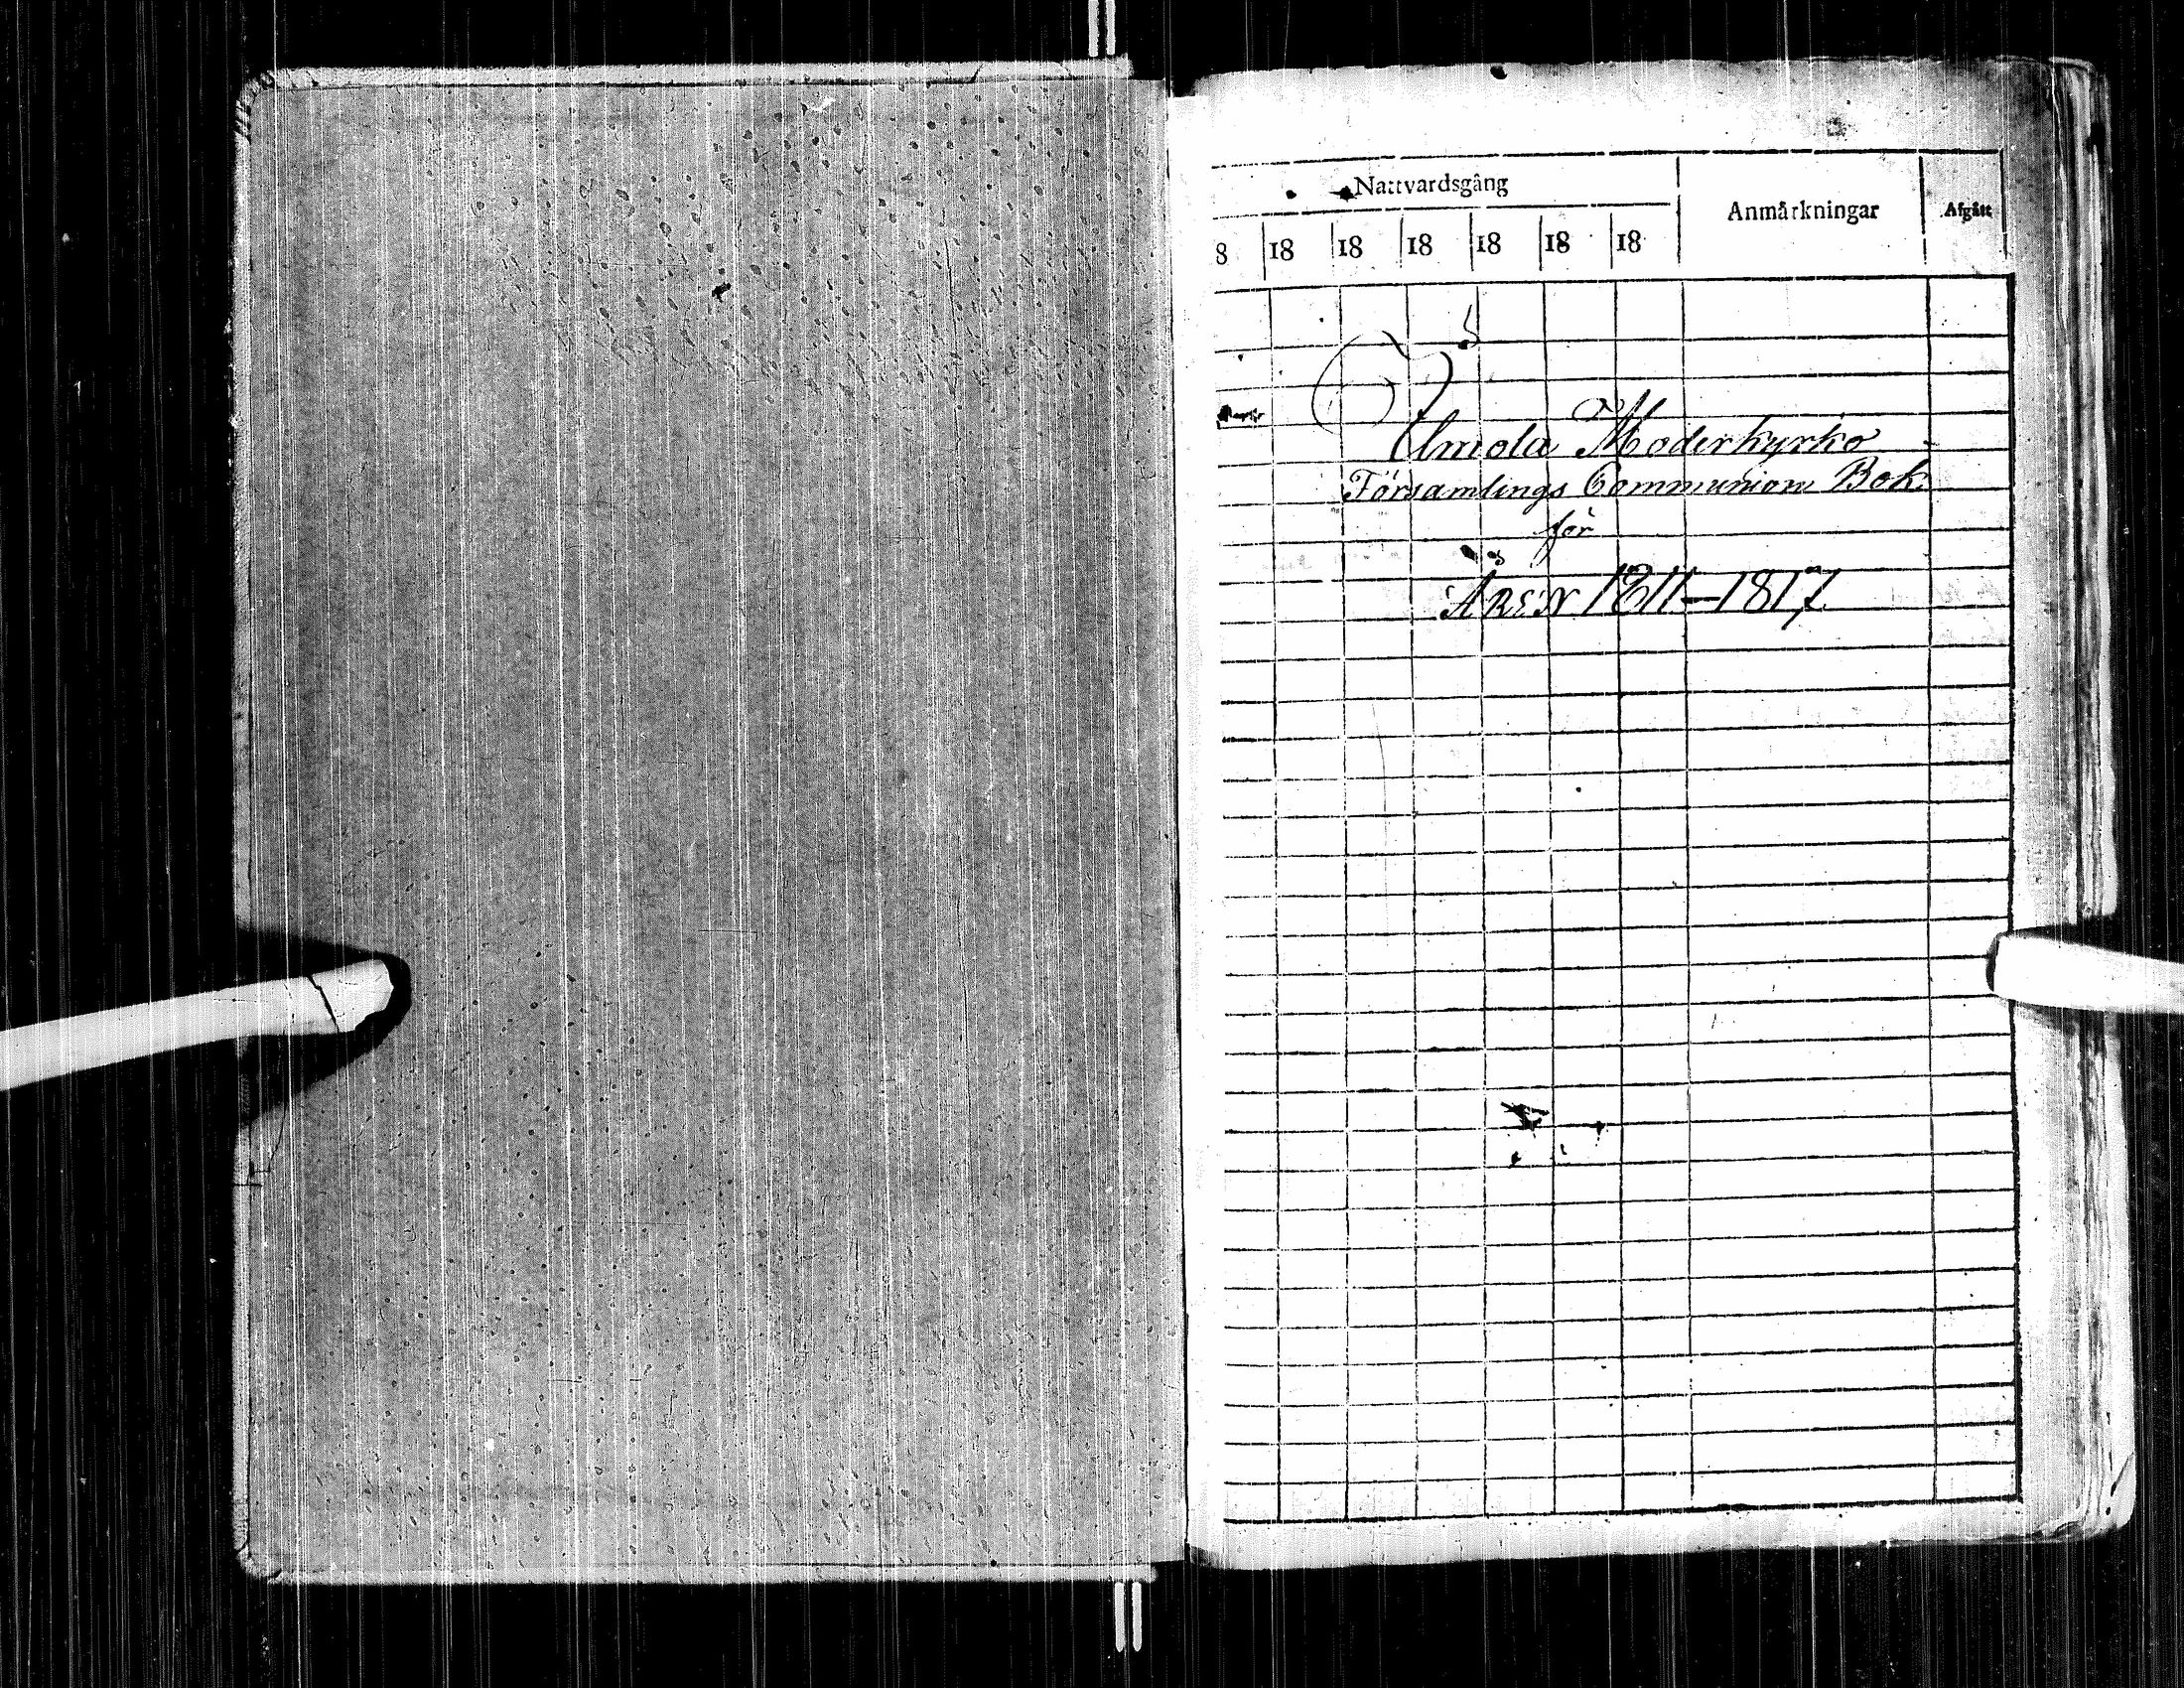 Nattvardsgång
Anmärkningar
Afgått
8 18 18 18 18 18 18
Ilmola Moderkyrko
Församlings Communion Bok
för
ÅREN 1811–1817